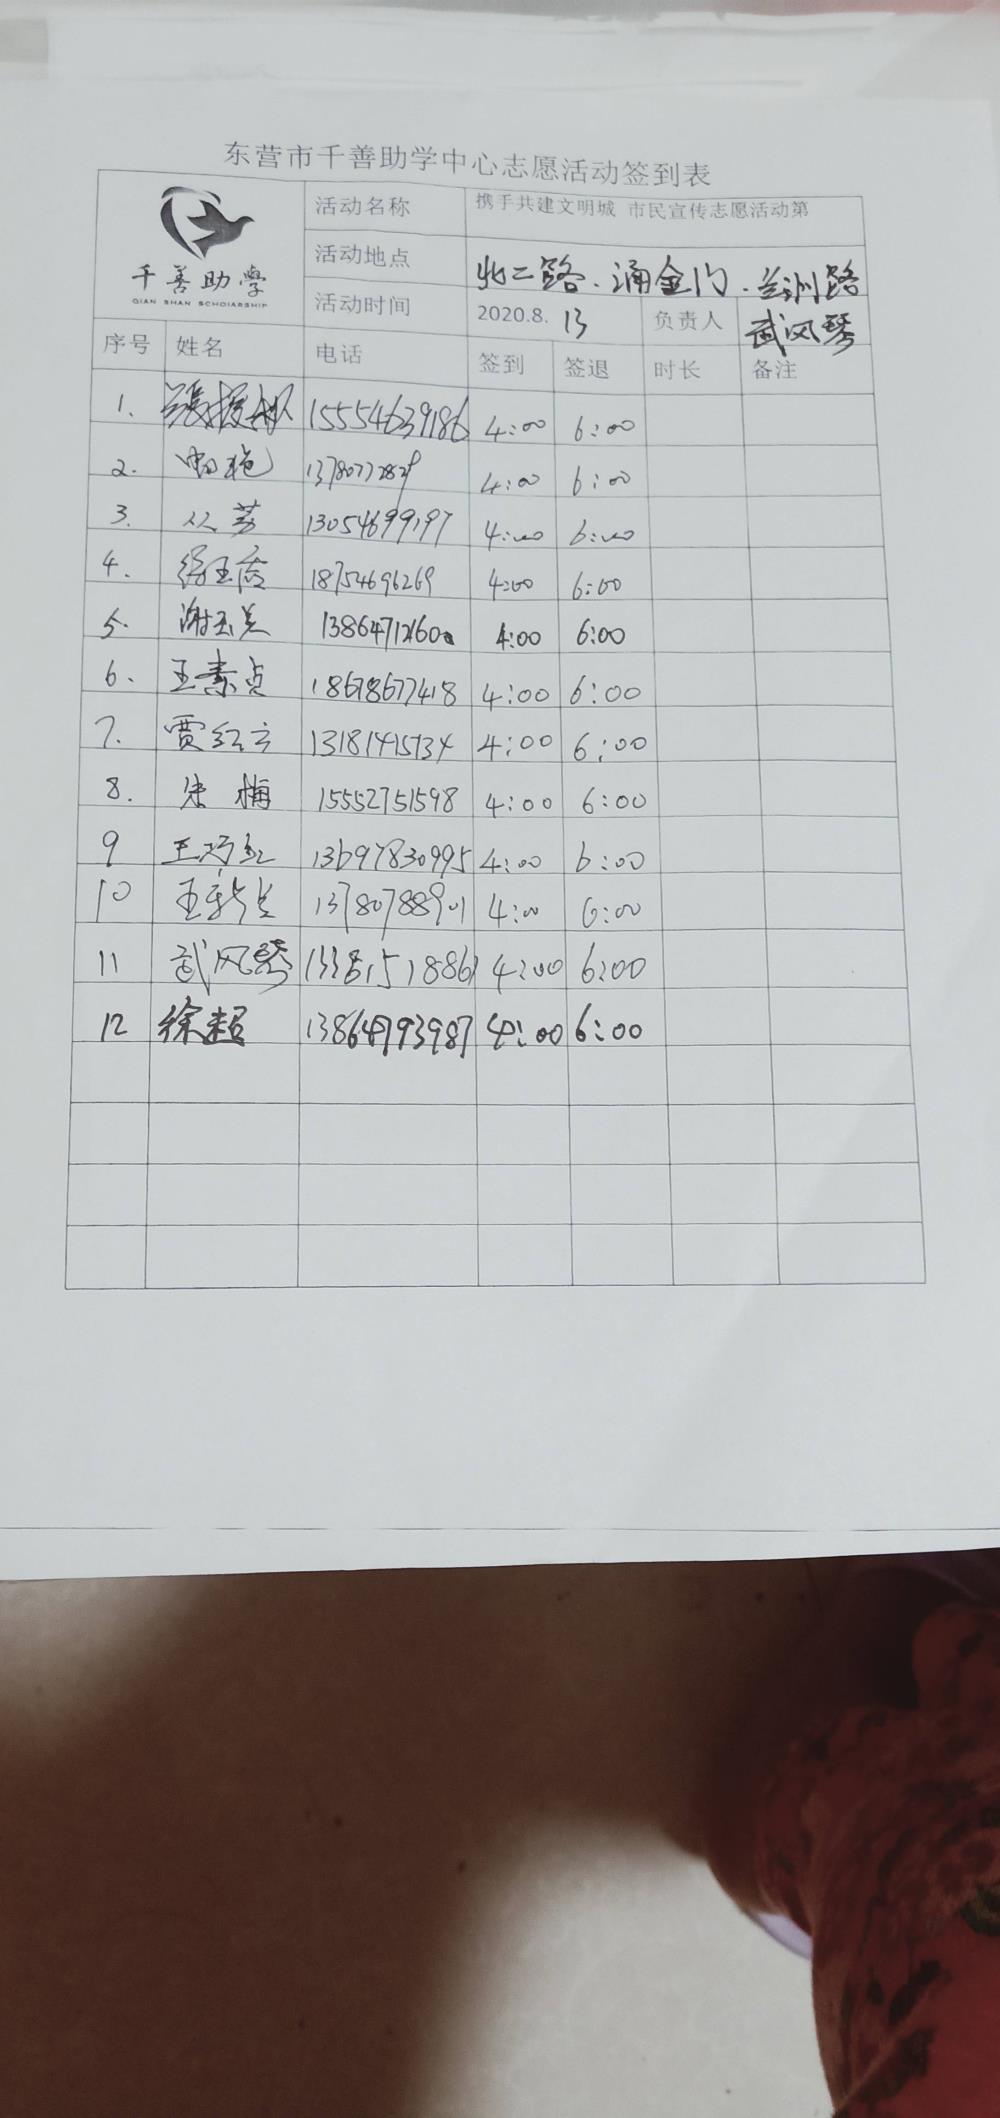 东营市千善助学中心志愿活动签到表
千善助學
QIAN SHAN SCHOLARSHIP
活动名称 携手共建文明城 市民宣传志愿活动第
活动地点 北二路.涌金门.兰州路
活动时间 2020.8.13 负责人 武风琴
序号 姓名 电话 签到 签退 时长 备注
1. 15554639186 4:00 6:00
2. 4:00 6:00
3. 13054699197 4:00 6:00
4. 18754696269 4:00 6:00
5. 谢玉兰 4:00 6:00
6. 王素贞 18678677418 4:00 6:00
7. 贾红云 13181415734 4:00 6:00
8. 朱梅 15552751598 4:00 6:00
9 王巧红 13697830995 4:00 6:00
10 王新兰 13780788901 4:00 6:00
11 武风琴 4:00 6:00
12 徐超 13864793987 4:00 6:00